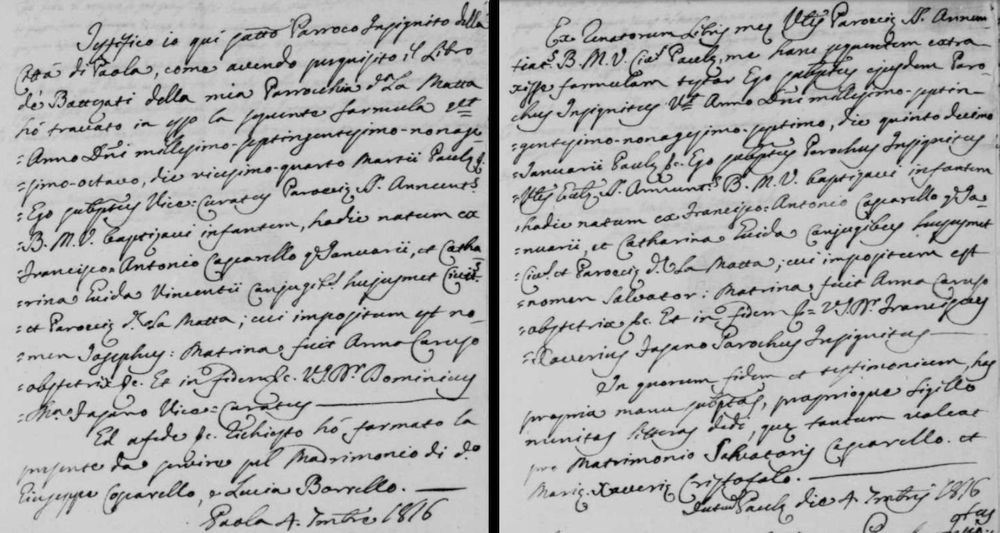 Testifico io qui sotto Parroco Insignito della
Città di Paola, come avendo perquisito il Libro
de' Battezati della mia Parrocchia d.ª La Matta
hò trovato in esso la seguente formula =
= Anno Dñi millesimo-septingentesimo-nonage
= simo-octavo, die vicesimo-quarto Martii Paulæ &.
= Ego subptus Vice-Curatus Parocciæ SS. Annunt.s
= B. M. V. baptizavi infantem, hodie natum ex
= Francisco-Antonio Casparello q. Januarii, et Catha
= rina Guida Vincentii Conjugib.s hujusmet Civit.s
= et Parocciæ d.æ La Matta; cui impositum est no-
= men Josephus: Matrina fuit Anna Caruso
= obstetrix &c. Et in fidem &c. V.I.Dr. Dominicus
= M.a Fasano Vice-Curatus
Ed a fede &c. richiesto hò formato la
presente da servire pel Madrimonio di d.o
Giuseppe Casparello, e Lucia Borrello.
Paola 4. 7mbre 1816
Ex Renatorum Libris meæ Ut.s Parocciæ SS. Annun
tiat.s B. M. V. Civ.s Paulæ, me hanc sequentem extra
xisse formulam testor Ego subptus ejusdem Paro-
chus Insignitus Anno Dñi millesimo-septin-
= gentesimo-nonagesimo-septimo, die quinto decimo
= Januarii Paulæ &c. Ego subptus Parochus Insignitus
= SS. Annunt.s B. M. V. baptizavi infantem
= hodie natum ex Francisco-Antonio Casparello q. Ja-
= nuarii, et Catharina Guida Conjugibus hujusmet
= Civ.s et Parocciæ d.æ La Matta; cui impositum est
= nomen Salvator: Matrina fuit Anna Caruso
= obstetrix &c. Et in fidem &c = V.I.Dr. Franciscus
= Xaverius Fasano Parochus Insignitus
In quorum fidem et testimonium, has
propria manu subptas, proprioque sigillo
munitas litteras dedi, quæ tantum valeat
pro Matrimonio Salvatoris Casparello et
Mariæ Xaveriæ Cristofalo.
Datum Paulæ die 4. 7mbris 1816